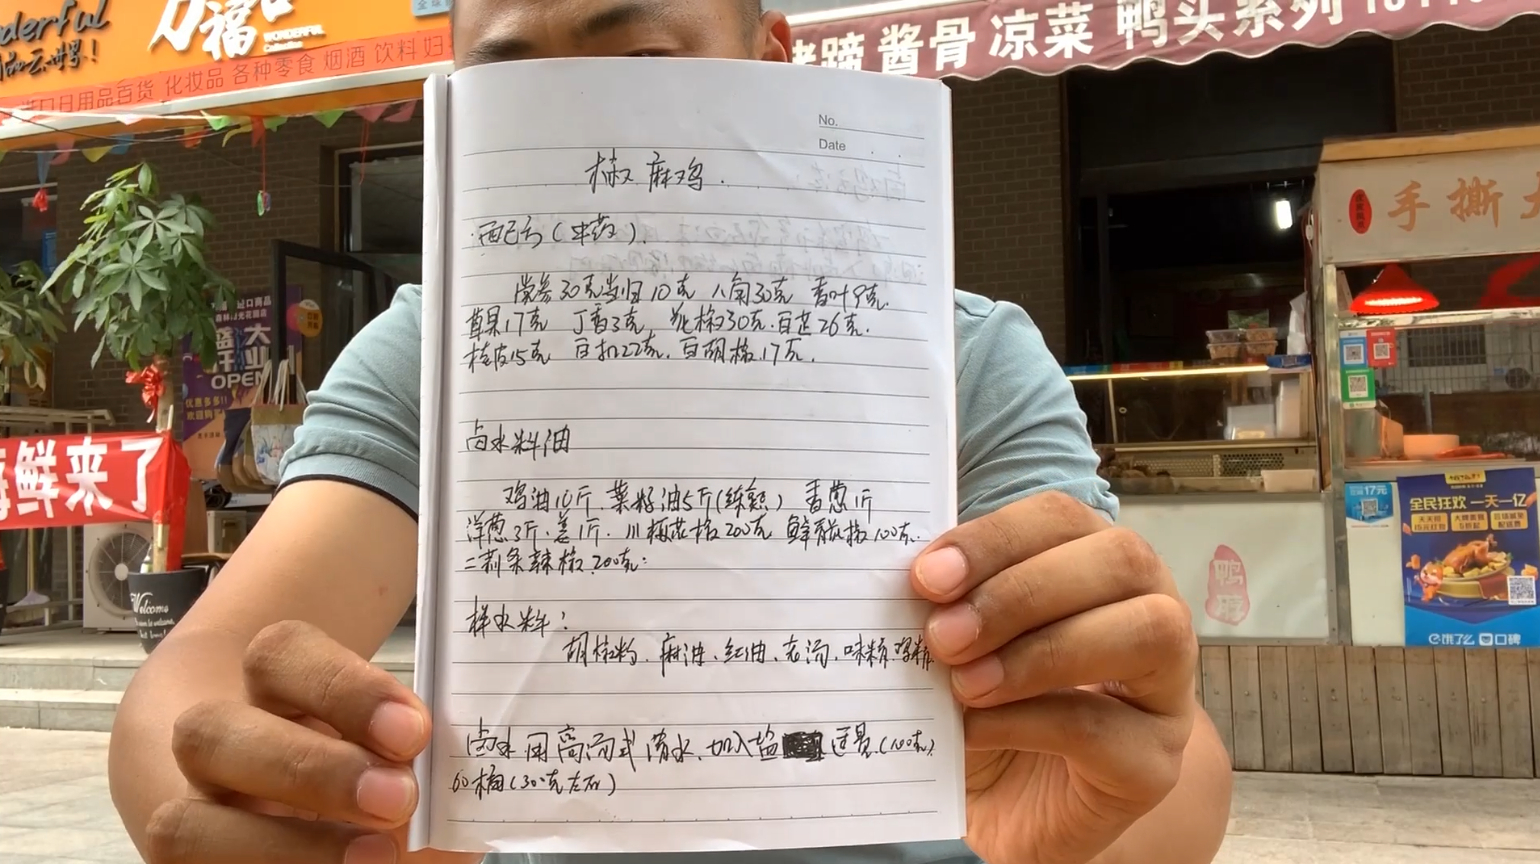 福
WONDERFUL
口日用品百货 化妆品 各种零食 烟酒 饮料
蹄 酱骨 凉菜 鸭头系列
手撕
进口商品
盛大
开业
OPEN
海鲜来了
Welcome
No.
Date
椒麻鸡.
配方(中药).
党参30克当归10克 八角30克 香叶9克.
草果17克 丁香3克, 花椒30克.白芷26克.
桂皮15克 白扣22克.白胡椒17克.
卤水料油
鸡油10斤.菜籽油5斤(练熟) 香葱1斤
洋葱3斤.姜1斤. 川椒花椒200克 鲜青花椒100克.
二荆条辣椒200克.
拌水料:
胡椒粉.麻油.红油.老汤.味精.鸡精
卤水用高汤或清水.加入盐适量(100克)
(30克左右)
鸭脖
立减17元
全民狂欢 一天一亿
饿了么 口碑